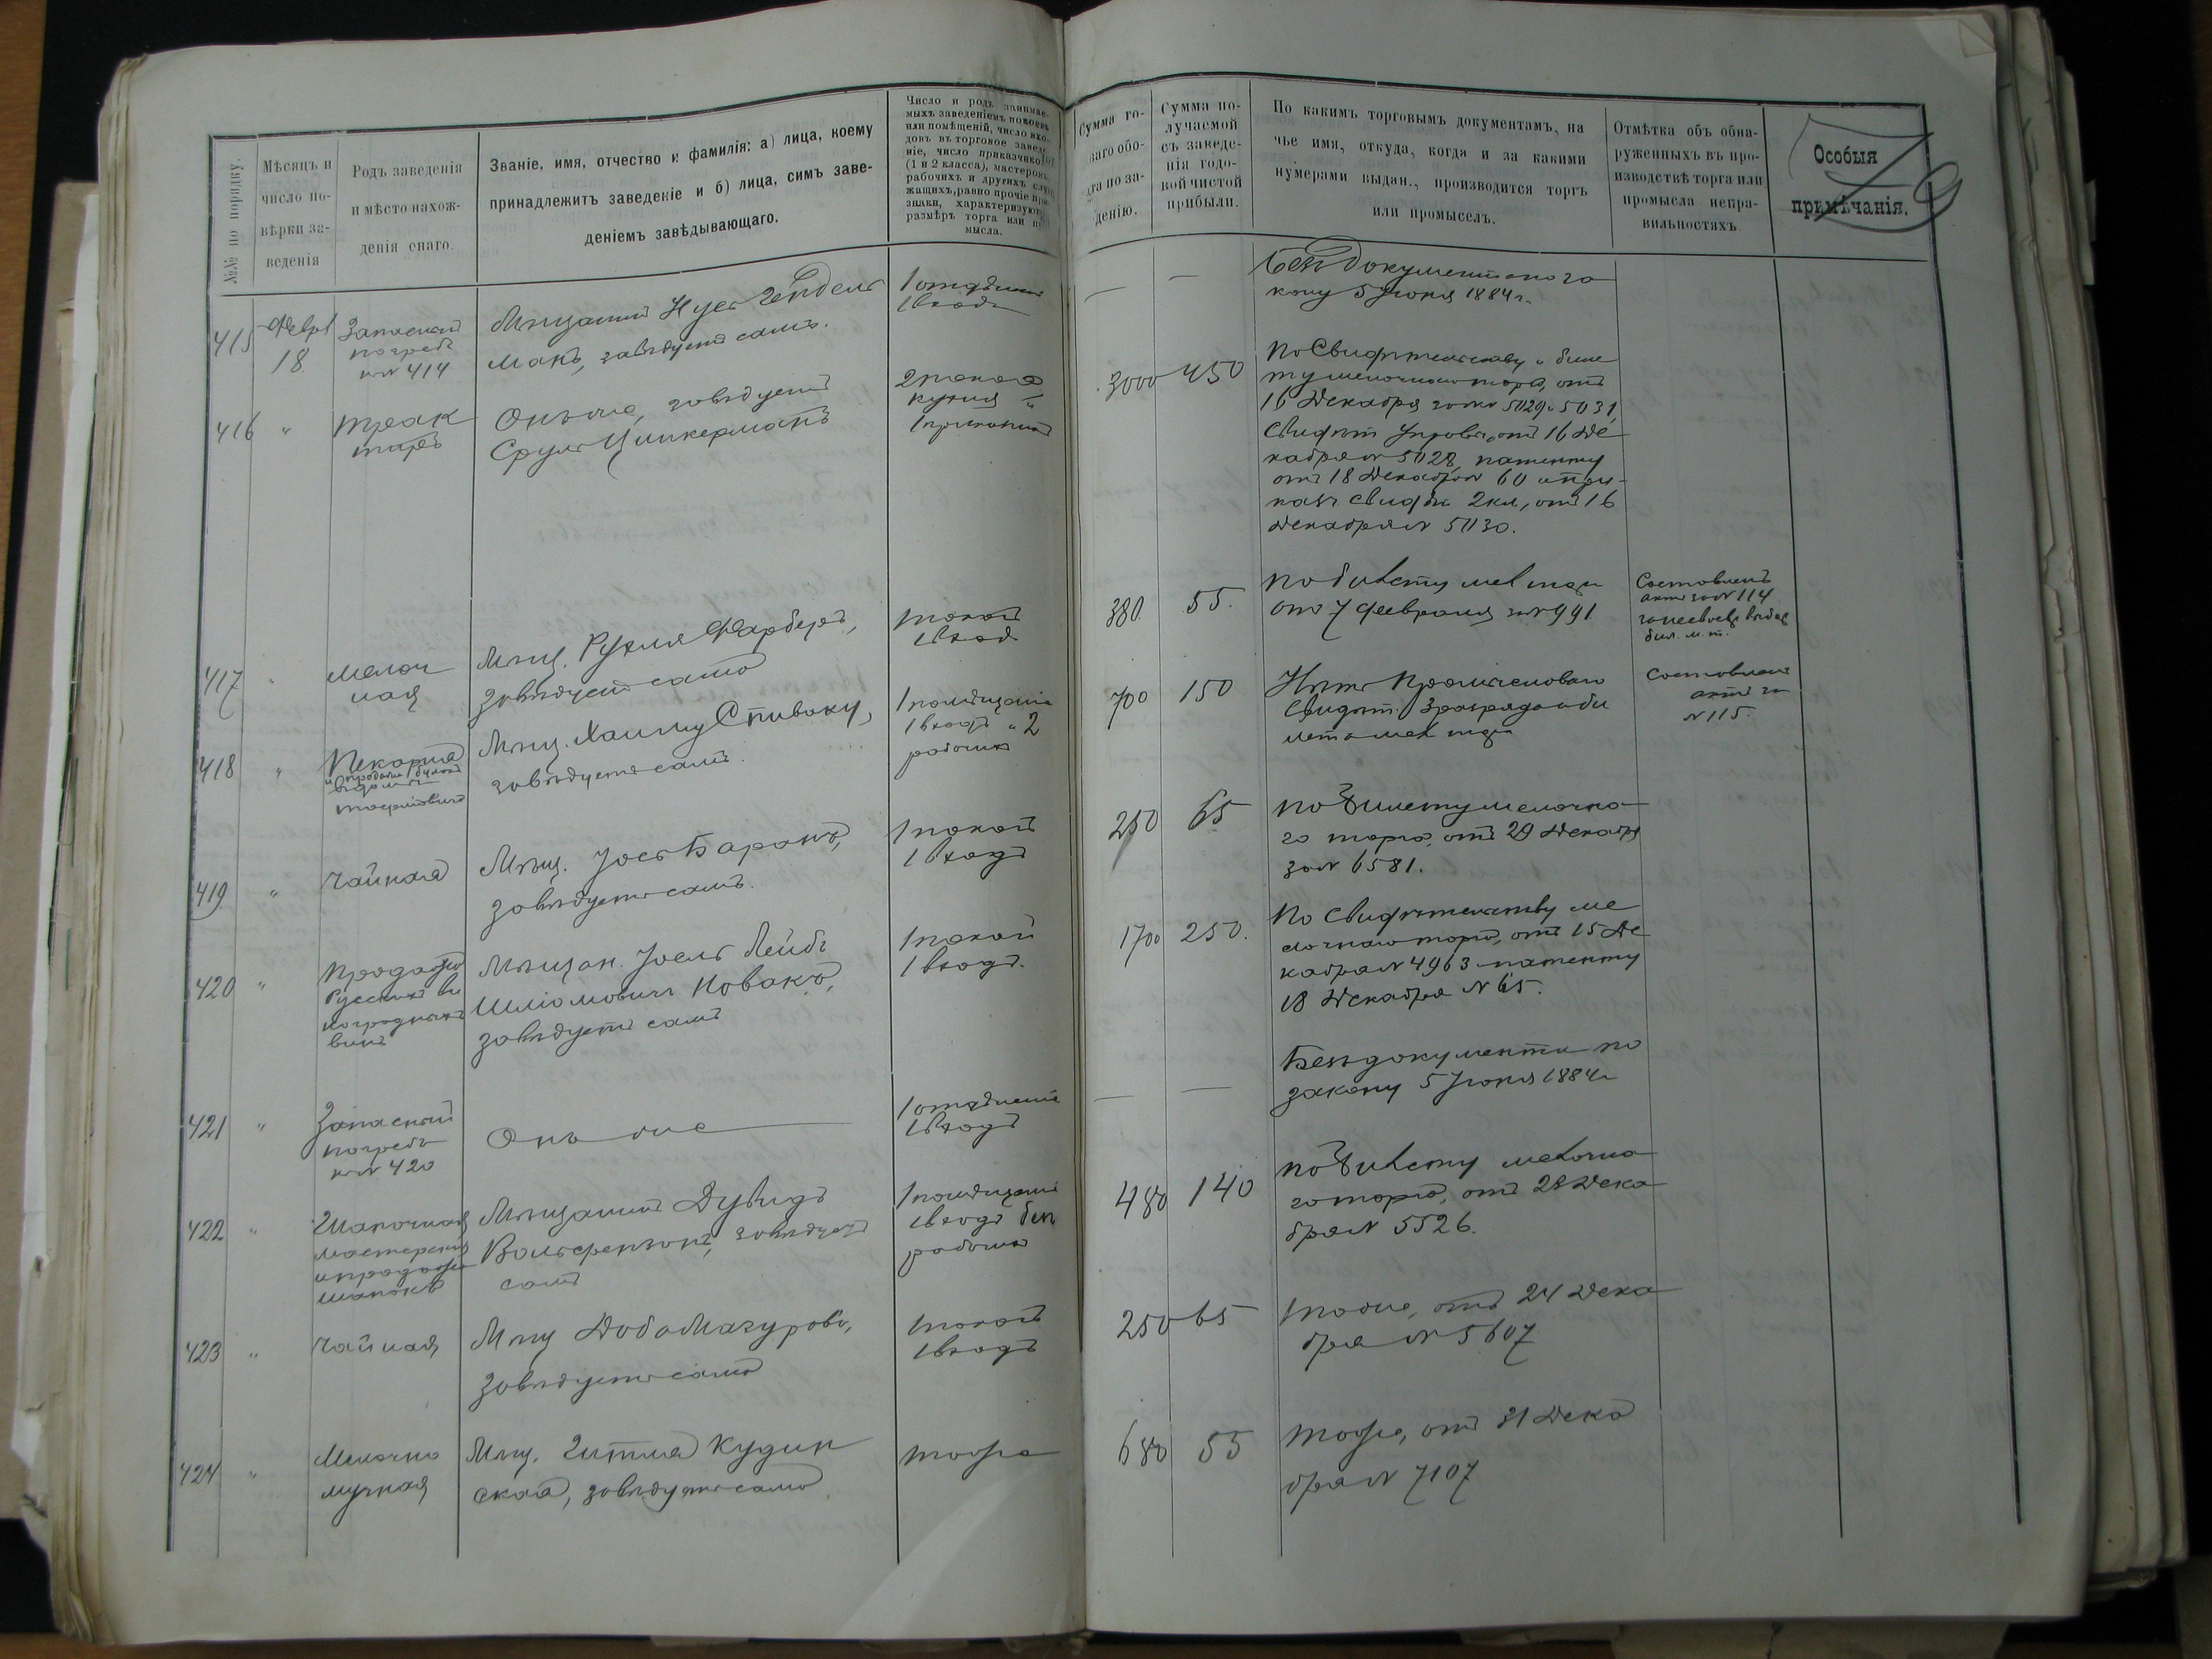 №№ по порядку.
Мѣсяцъ и
число по-
вѣрки за-
веденія
Родъ заведенія
и мѣсто нахож-
денія онаго.
Званіе, имя, отчество и фамилія: а) лица, коему
принадлежитъ заведеніе и б) лица, симъ заве-
деніемъ завѣдывающаго.
Число и родъ занимае-
мыхъ заведеніемъ покоевъ
или помѣщеній, число вхо-
довъ въ торговое заведе-
ніе, число приказчиковъ
(1 и 2 класса), мастеровъ
рабочихъ и другихъ слу-
жащихъ, равно прочіе при-
знаки, характеризующіе
размѣръ торга или про-
мысла.
Сумма го-
заго обо-
та по за-
денію.
Сумма по-
лучаемой
съ заведе-
нія годо-
вой чистой
прибыли.
По какимъ торговымъ документамъ, на
чье имя, откуда, когда и за какими
нумерами выдан., производится торгъ
или промыселъ.
Отмѣтка объ обна-
руженныхъ въ про-
изводствѣ торга или
промысла непра-
вильностяхъ
Особыя
примѣчанія.
415
Февр
18
Запасный
погребъ
к № 414
Мѣщанинъ Нусъ Гендель
манъ, завѣдуетъ самъ.
1 отдѣленіе
1 входъ
—
—
Безъ документа по за
кону 5 Іюня 1884 г.
416
"
Трак
тиръ
Онъ же, завѣдуетъ
Сруль Цинкерманъ
2 покоя
кухня
3000
450
По Свидѣтельству и биле
ту мелочнаго торга, отъ
16 Декабря за № 5029 и 5031,
Свидѣт. Управы, отъ 16 Де
кабря № 5028, патенту
отъ 18 Декабря № 60 и при-
каз. Свидѣт. 2 кл., отъ 16
Декабря № 5030.
417
"
Мелоч
ная
Мѣщ. Рухля Фарберъ,
завѣдуетъ сама
1 покой
1 входъ
380
55.
По билету мел торг
отъ 7 Февраля за № 991
Составленъ
актъ за № 114
бил. м. т.
418
"
Пекарня
и продажа булокъ
Мѣщ. Хаиму Спиваку,
завѣдуетъ самъ.
1 помѣщеніе
1 входъ и 2
рабочихъ
700
150
Нѣтъ Промысловаго
Свидѣт. 3 разряда и би
лета мел торга
Составленъ
актъ за
№ 115.
419
"
Чайная
Мѣщ. Іось Баранъ,
завѣдуетъ самъ.
1 покой
1 входъ
250
65
По Билету мелочна
го торга, отъ 29 Декабря
за № 6581.
420
"
Продажа
Русскихъ ви
ноградныхъ
винъ
Мѣщан. Іоель Лейбъ
Шліомовичъ Новакъ,
завѣдуетъ самъ
1 покой
1 входъ.
1700
250.
По Свидѣтельству ме
лочнаго торга, отъ 15 Де
кабря № 4963 и патенту
18 Декабря № 65.
421
"
Запасный
погребъ
к № 420
Онъ же
1 отдѣленіе
1 входъ
—
—
Безъ документа по
закону 5 Іюня 1884 г
422
"
Шапочная
мастерская
и продажа
шапокъ
Мѣщанинъ Дувидъ
Вольфензонъ, завѣдуетъ
самъ
1 помѣщеніе
1 входъ без
рабочихъ
480
140
По Билету мелочна
го торга, отъ 28 Дека
бря № 5526.
423
"
Чайная
Мѣщ Доба Мазурова,
завѣдуетъ сама
1 покой
1 входъ
250
65
Тоже, отъ 24 Дека
бря № 5607
424
"
Мелочно
мучная
Мѣщ. Гитля Кудин
ская, завѣдуетъ сама
тоже
680
55
Тоже, отъ 31 Дека
бря № 7107